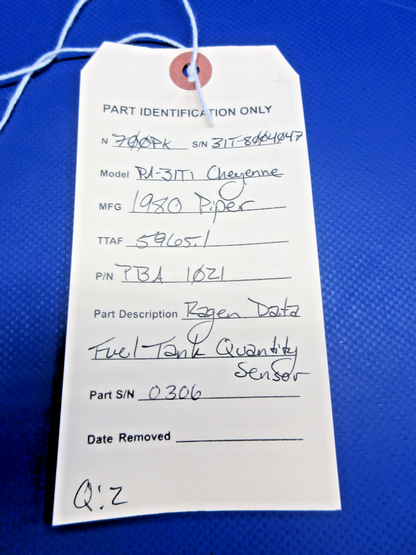 PART IDENTIFICATION ONLY
N 7ØØPK S/N 31T-8ØØ4Ø47
Model PA-31T1 Cheyenne
MFG 1980 Piper
TTAF 5965.1
P/N PBA 1Ø21
Part Description Ragen Data
Fuel Tank Quantity
Sensor
Part S/N 0306
Date Removed
Q:2